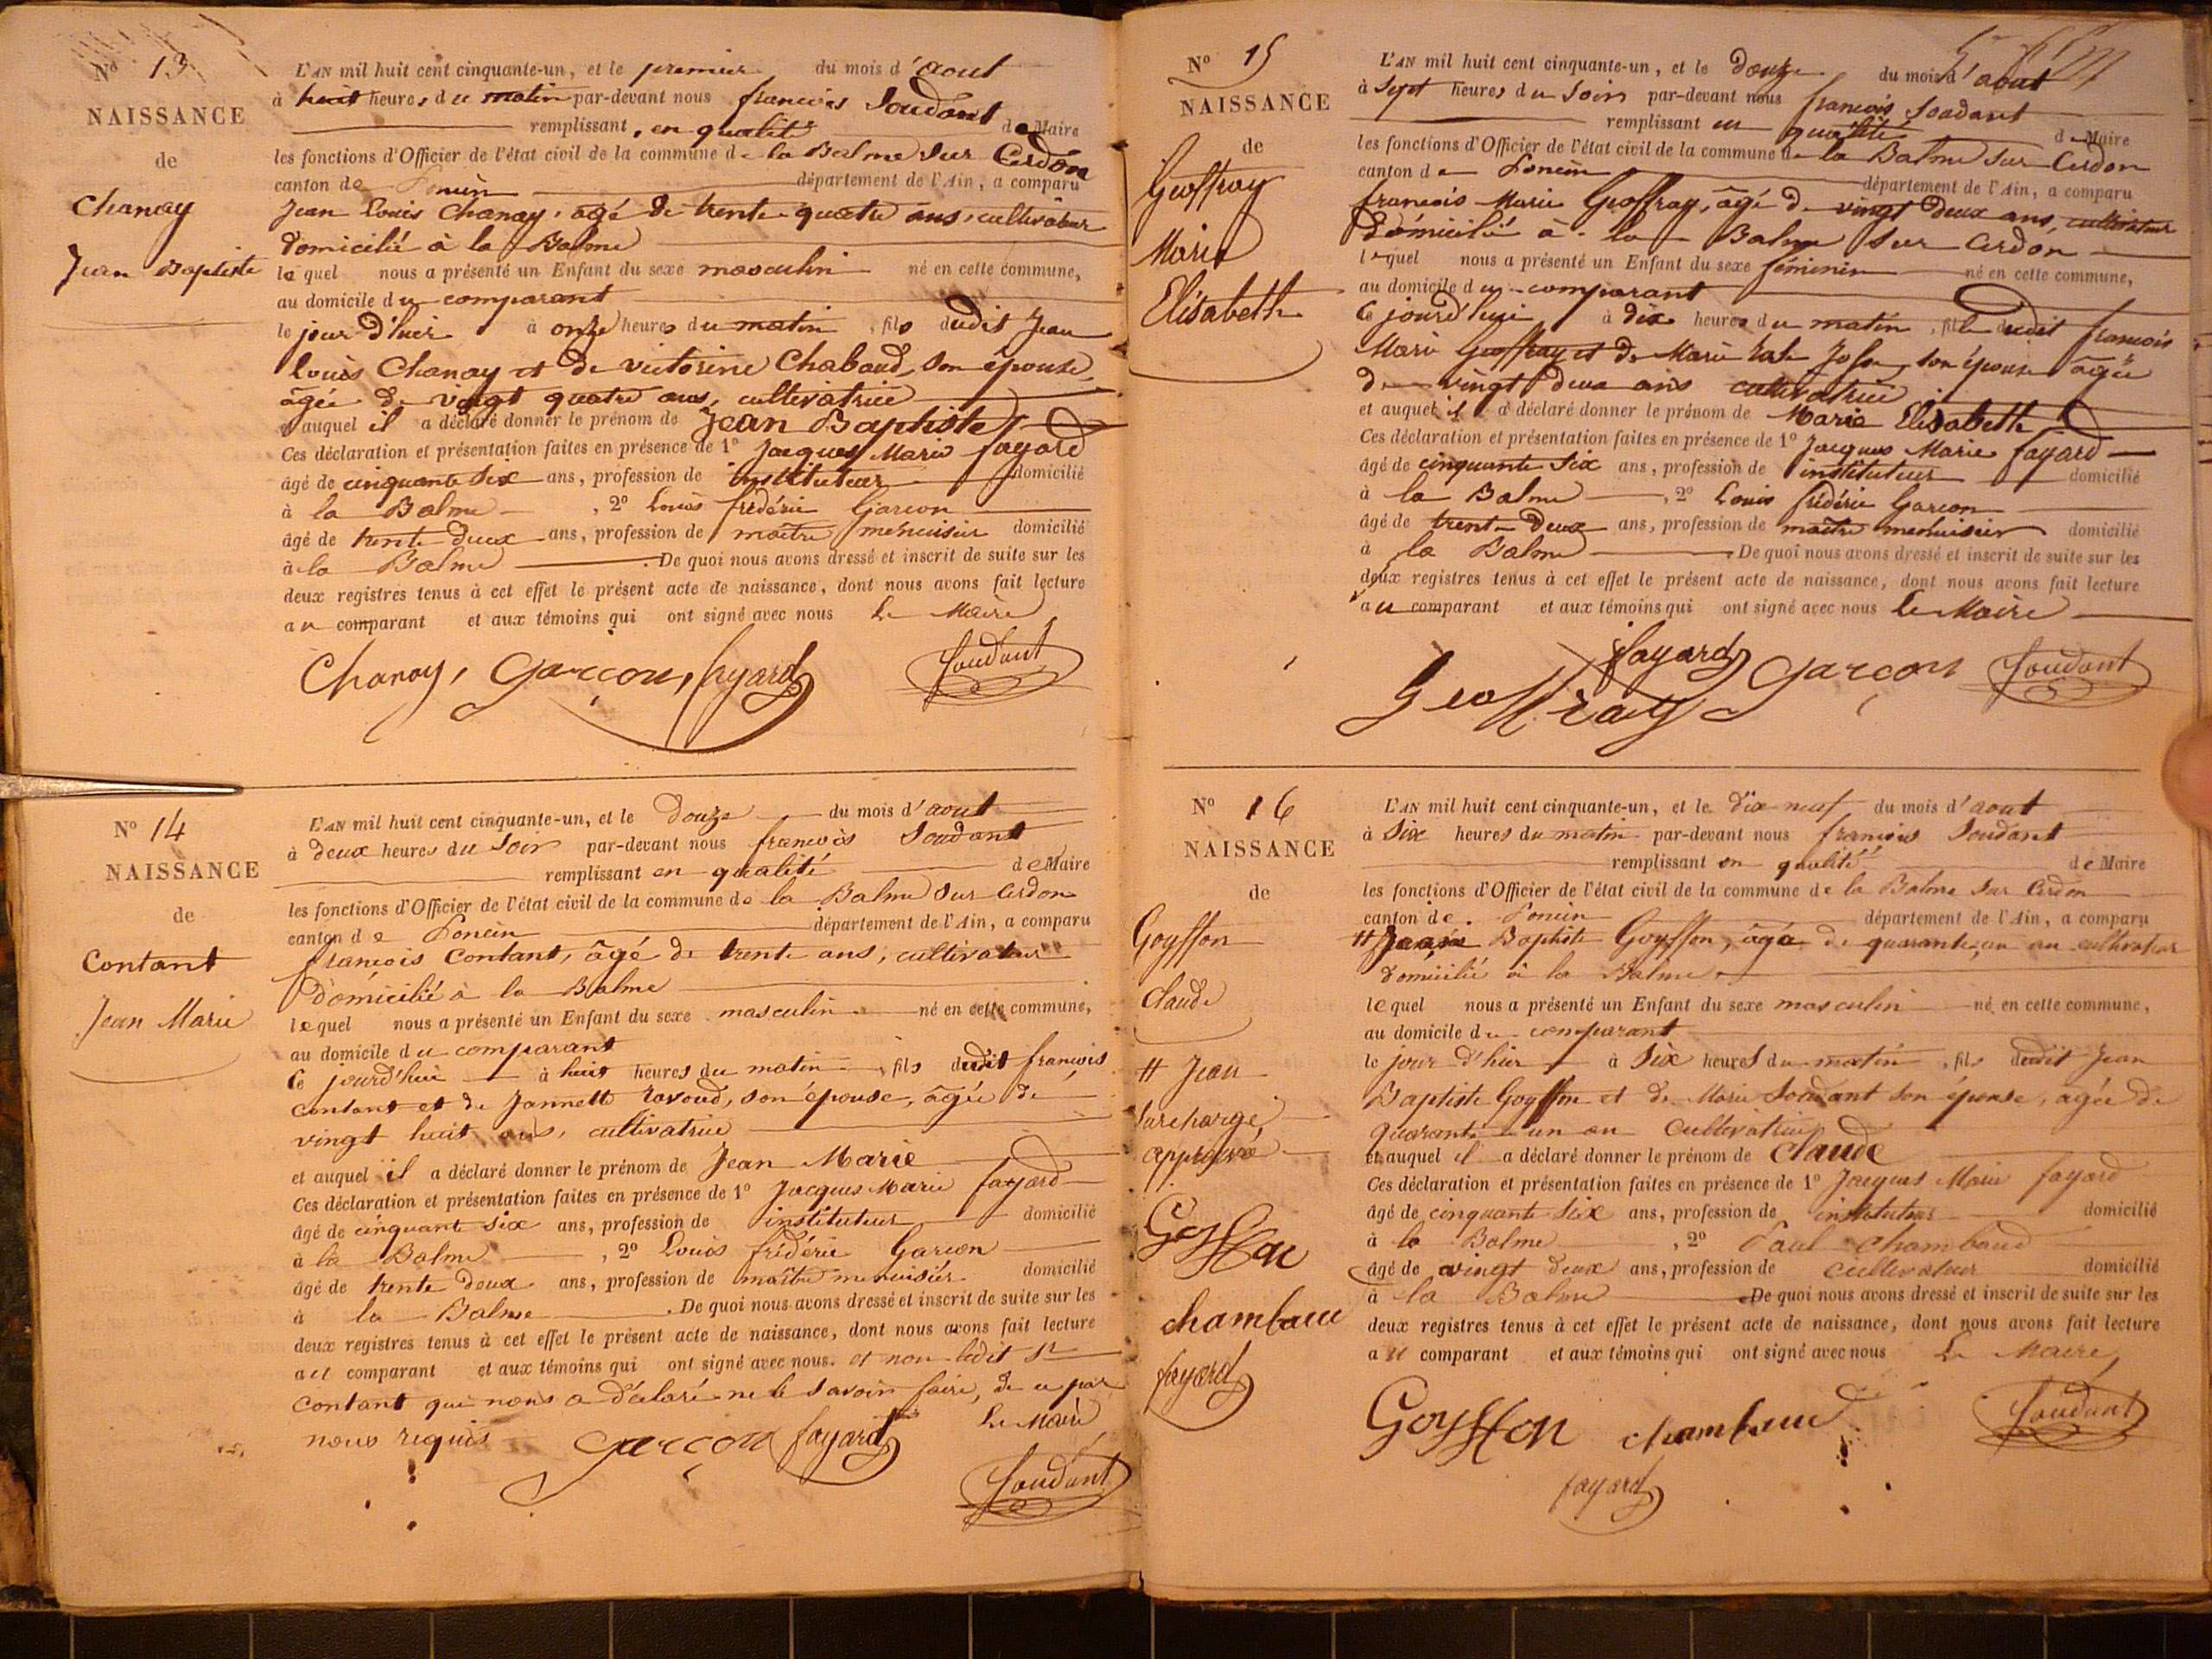 N° 13
NAISSANCE
de
Chanay
Jean Baptiste
L'AN mil huit cent cinquante-un, et le premier du mois d'aout
à huit heures du matin par-devant nous françois Soudant
remplissant, en qualité de Maire
les fonctions d'Officier de l'état civil de la commune de la Balme sur Cerdon
canton de Poncin département de l'Ain, a comparu
Jean Louis Chanay, agé de trente quatre ans, cultivateur
domicilié à la Balme
lequel nous a présenté un Enfant du sexe masculin né en cette commune,
au domicile du comparant
le jour d'hier à onze heures du matin, fils dudit Jean
Louis Chanay et de victorine Chaboud, son épouse
âgée de vingt quatre ans, cultivatrice
et auquel il a déclaré donner le prénom de Jean Baptiste
Ces déclaration et présentation faites en présence de 1° Jacques Marie fayard
âgé de cinquante six ans, profession de instituteur domicilié
à la Balme, 2° Louis frédéric Garcon
âgé de trente deux ans, profession de maître menuisier domicilié
à la Balme. De quoi nous avons dressé et inscrit de suite sur les
deux registres tenus à cet effet le présent acte de naissance, dont nous avons fait lecture
au comparant et aux témoins qui ont signé avec nous Le Maire
Chanay, Garcon, fayard Soudant
N° 14
NAISSANCE
de
Contant
Jean Marie
L'AN mil huit cent cinquante-un, et le Douze du mois d'aout
à deux heures du Soir par-devant nous francois Soudant
remplissant en qualité de Maire
les fonctions d'Officier de l'état civil de la commune de la Balme sur Cerdon
canton de Poncin département de l'Ain, a comparu
francois Contant, âgé de trente ans, cultivateur
domicilié à la Balme
lequel nous a présenté un Enfant du sexe masculin né en cette commune,
au domicile du comparant
Ce jourd'hui à huit heures du matin, fils dudit francois
contant et de Jannette Ravoud, son épouse, âgée de
vingt huit ans, cultivatrice
et auquel il a déclaré donner le prénom de Jean Marie
Ces déclaration et présentation faites en présence de 1° Jacques Marie fayard
âgé de cinquant six ans, profession de instituteur domicilié
à la Balme, 2° Louis frédéric Garcon
âgé de trente deux ans, profession de maître menuisier domicilié
à la Balme. De quoi nous avons dressé et inscrit de suite sur les
deux registres tenus à cet effet le présent acte de naissance, dont nous avons fait lecture
au comparant et aux témoins qui ont signé avec nous. et non ledit Sr
Contant qui nous a déclaré ne le savoir faire, de ce par
nous requis Le Maire
Garcon fayard
Soudant
N° 15
NAISSANCE
de
Geoffray
Marie
Elisabeth
L'AN mil huit cent cinquante-un, et le douze du mois d'aout
à Sept heures du Soir par-devant nous francois Soudant
remplissant en qualité de Maire
les fonctions d'Officier de l'état civil de la commune de la Balme sur Cerdon
canton de Poncin département de l'Ain, a comparu
francois Marie Geoffray, âgé de vingt deux ans, cultivateur
domicilié à la Balme sur Cerdon
lequel nous a présenté un Enfant du sexe féminin né en cette commune,
au domicile du comparant
Ce jourd'hui à dix heures du matin, fille dudit francois
Marie Geoffray et de Marie son épouse âgée
de vingt deux ans cultivatrice
et auquel il a déclaré donner le prénom de Marie Elisabeth
Ces déclaration et présentation faites en présence de 1° Jacques Marie fayard
âgé de cinquante six ans, profession de instituteur domicilié
à la Balme, 2° Louis frédéric Garcon
âgé de trente deux ans, profession de maître menuisier domicilié
à la Balme. De quoi nous avons dressé et inscrit de suite sur les
deux registres tenus à cet effet le présent acte de naissance, dont nous avons fait lecture
au comparant et aux témoins qui ont signé avec nous Le Maire
fayard Garcon Soudant
Geoffray
N° 16
NAISSANCE
de
Goyffon
Claude
# Jean
Surcharge
approuvé
Goyffon
chambaud
fayard
L'AN mil huit cent cinquante-un, et le dix neuf du mois d'aout
à Six heures du matin par-devant nous françois Soudant
remplissant en qualité de Maire
les fonctions d'Officier de l'état civil de la commune de la Balme sur Cerdon
canton de Poncin département de l'Ain, a comparu
# Jean Baptiste Goyffon, âgé de quarante un an cultivateur
domicilié à la Balme
lequel nous a présenté un Enfant du sexe masculin né en cette commune,
au domicile du comparant
le jour d'hier à Six heures du matin, fils dudit Jean
Baptiste Goyffon et de Marie Soudant son épouse, agée de
quarante un an Cultivatrice
et auquel il a déclaré donner le prénom de Claude
Ces déclaration et présentation faites en présence de 1° Jacques Marie fayard
âgé de cinquante Six ans, profession de instituteur domicilié
à la Balme, 2° Paul Chambaud
âgé de vingt deux ans, profession de cultivateur domicilié
à la Balme De quoi nous avons dressé et inscrit de suite sur les
deux registres tenus à cet effet le présent acte de naissance, dont nous avons fait lecture
au comparant et aux témoins qui ont signé avec nous Le Maire,
Goyffon chambaud Soudant
fayard